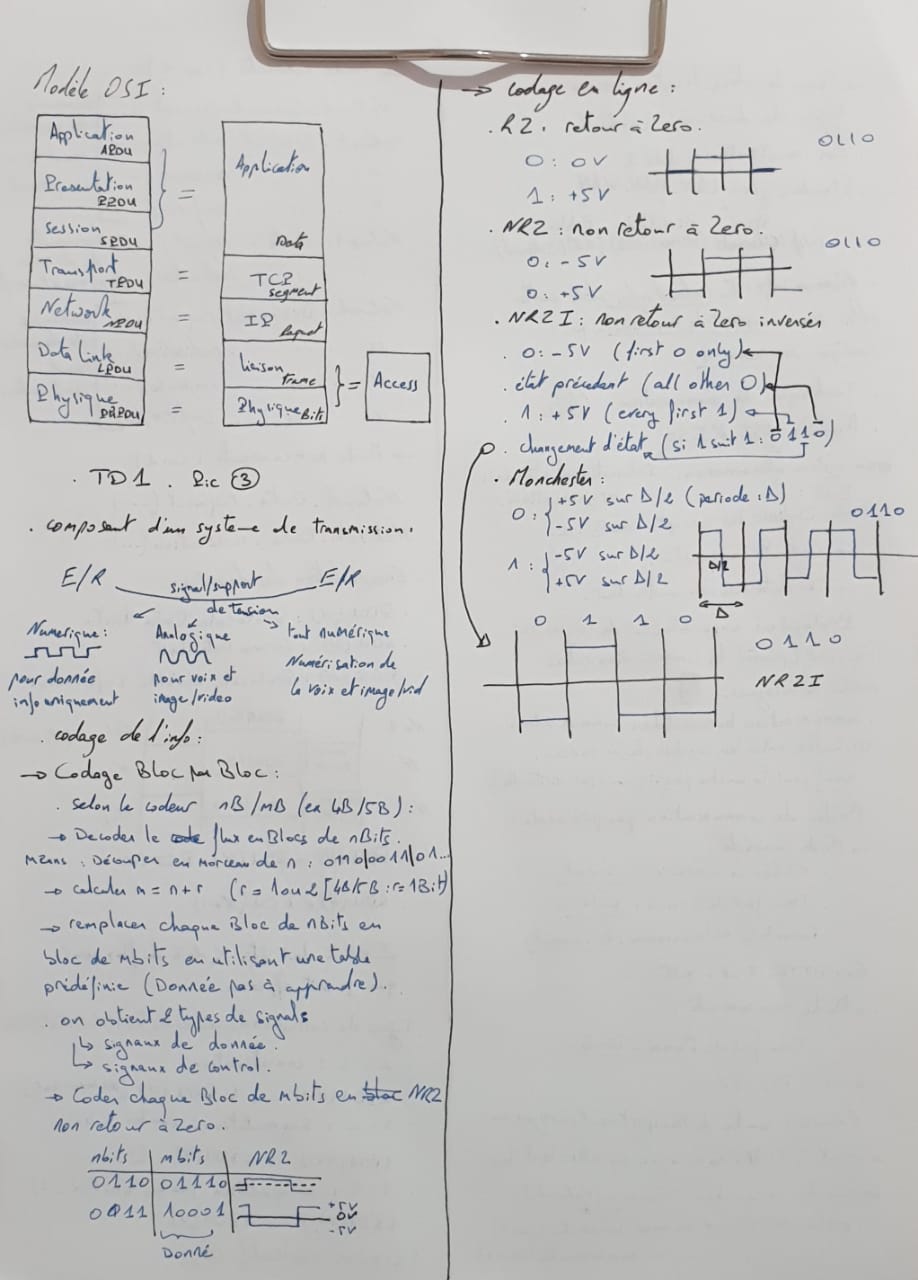 Modèle OSI :
Application
APDU
Presentation
PPDU
Session
SPDU
Transport
TPDU
Network
NPDU
Data Link
LPDU
Physique
PHPDU
=
=
=
=
=
Application
Data
TCP
Segment
IP
Paquet
Liaison
Frame
Physique Bits
=
Access
. TD1 . Pic ③
. composant d'un systeme de transmission.
E/R signal/support E/R
de tension
Numerique :
pour donnée
info uniquement
Analogique
pour voix et
image/video
tout numérique
Numérisation de
la voix et image/vid
. codage de l'info :
→ Codage Bloc par Bloc :
. selon le codeur nB/mB (ex 4B/5B) :
→ Decoder le flux en Blocs de nBits.
Means : Découper en morceau de n : 0110/0011/01...
→ calculer m = n + r (r = 1 ou 2 [4B/5B : r = 1 Bit)
→ remplacer chaque Bloc de nBits en
bloc de mbits en utilisant une table
prédéfinie (Donnée pas à apprendre).
. on obtient 2 types de signals
↳ signaux de donnée.
↳ signaux de control.
→ Coder chaque Bloc de mbits en NRZ
non retour à Zero.
nbits mbits NRZ
0110 01110
0011 10001 +5V
0V
-5V
Donné
→ codage en ligne :
. RZ : retour à Zero.
0110
0 : 0V
1 : +5V
. NRZ : non retour à Zero.
0110
0 : -5V
0 : +5V
. NRZI : non retour à Zero inversés
. 0 : -5V (first 0 only)
. état précedent (all other 0)
. 1 : +5V (every first 1)
. changement d'état (si 1 suit 1 : 0110)
. Manchester :
0 : { +5V sur Δ/2 (periode : Δ)
-5V sur Δ/2
1 : { -5V sur Δ/2
+5V sur Δ/2
0110
Δ/2
Δ
0 1 1 0
0110
NRZI